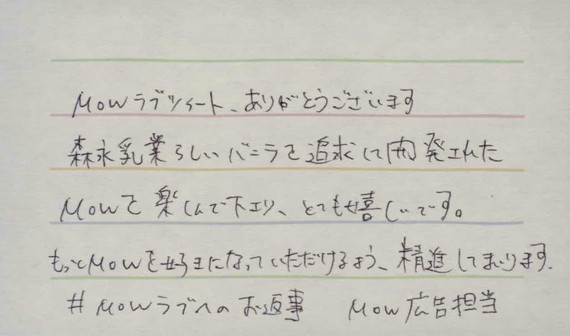 MOWラブツイート、ありがとうございます
森永乳業らしいバニラを追求して開発された
MOWを楽しんで下さり、とても嬉しいです。
もっとMOWを好きになっていただけるよう、精進してまいります.
#MOWラブへのお返事　MOW広告担当